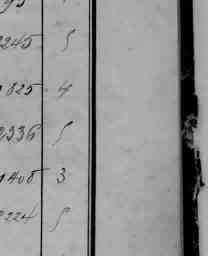 2245 5
825 4
2336 5
1408 3
2224 5